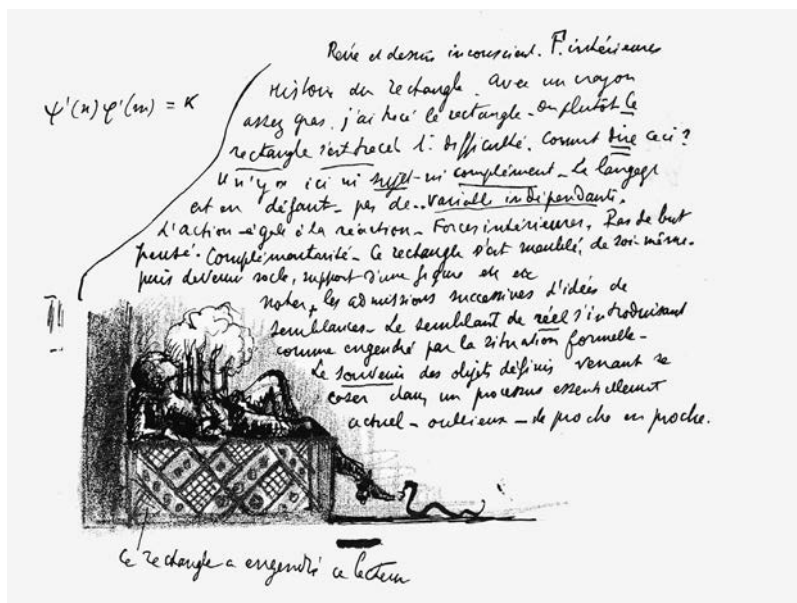 Rêve et dessin inconscient. F. intérieures
ψ'(n) φ'(m) = K
Histoire du rectangle. Avec un crayon
assez gras, j'ai tracé le rectangle - ou plutôt ce
rectangle s'est tracé 1: difficulté. Comment dire ceci ?
Il n'y a ici ni sujet - ni complément - Le langage
est en défaut - pas de.. variable indépendante.
L'action égale à la réaction - Forces intérieures, Pas de but
pensé. Complémentarité - Ce rectangle s'est meublé, de soi-même.
puis devenu socle, support d'une figure etc etc
noter les admissions successives d'idées de
semblances - Le semblant de réel s'introduisant
comme engendré par la situation formelle -
Le souvenir des objets définis venant se
caser dans un processus essentiellement
actuel - oublieux - de proche en proche.
Ce rectangle a engendré ce lecteur